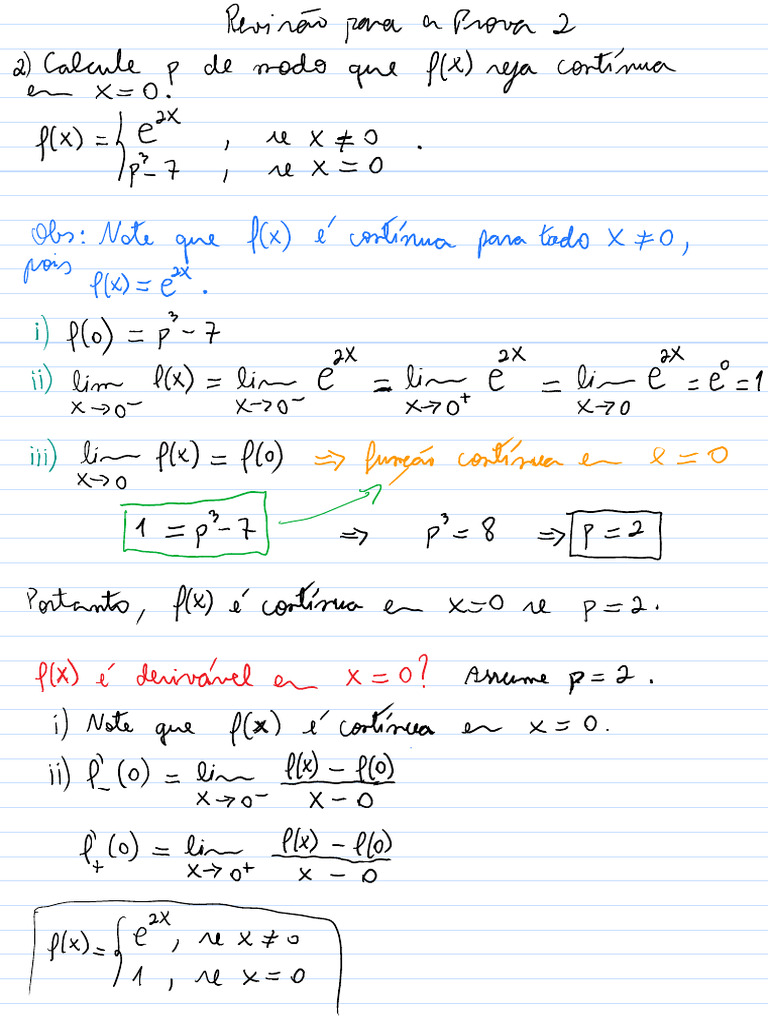 Revisão para a Prova 2
2) Calcule p de modo que f(x) seja contínua
em x=0.
f(x) = { e^{2x} , se x ≠ 0
p³-7 , se x = 0 .
Obs: Note que f(x) é contínua para todo x ≠ 0,
pois f(x) = e^{2x}.
i) f(0) = p³ - 7
ii) lim_{x→0⁻} f(x) = lim_{x→0⁻} e^{2x} = lim_{x→0⁺} e^{2x} = lim_{x→0} e^{2x} = e⁰ = 1
iii) lim_{x→0} f(x) = f(0) ⇒ função contínua em x = 0
1 = p³-7 ⇒ p³ = 8 ⇒ p = 2
Portanto, f(x) é contínua em x=0 se p=2.
f(x) é derivável em x = 0? Assume p = 2.
i) Note que f(x) é contínua em x = 0.
ii) f'₋(0) = lim_{x→0⁻} (f(x) - f(0))/(x - 0)
f'₊(0) = lim_{x→0⁺} (f(x) - f(0))/(x - 0)
f(x) = { e^{2x}, se x ≠ 0
1 , se x = 0